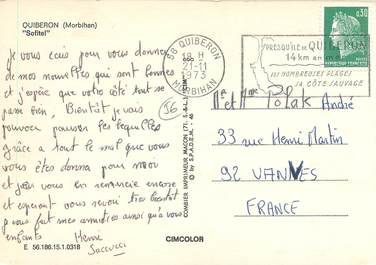 QUIBERON (Morbihan)
"Sofitel"
Je vous écris pour vous donner
de mes nouvelles qui sont bonnes
et j'espère que votre côté tout se
passe bien, Bientôt je vais
pouvoir passer les béquilles
grâce a tout le mal que vous
vous êtes donna pour moi
et je vous en remercie encore
et espérant vous revoir très bientôt
je vous fait mes amitiés ainsi qu'à vos
enfants
Henri
E 56.186.15.1.0318
CIMCOLOR
COMBIER IMPRIMEUR MACON (71. S.-&-L.)
© by S.P.A.D.E.M. - 46
56 QUIBERON
18 H
21-11
1973
MORBIHAN
PRESQU'ILE DE QUIBERON
14 km en
SES NOMBREUSES PLAGES
SA CÔTE SAUVAGE
0,30
56
Mr et Mme Polak André
33 rue Henri Martin
92 VANVES
FRANCE